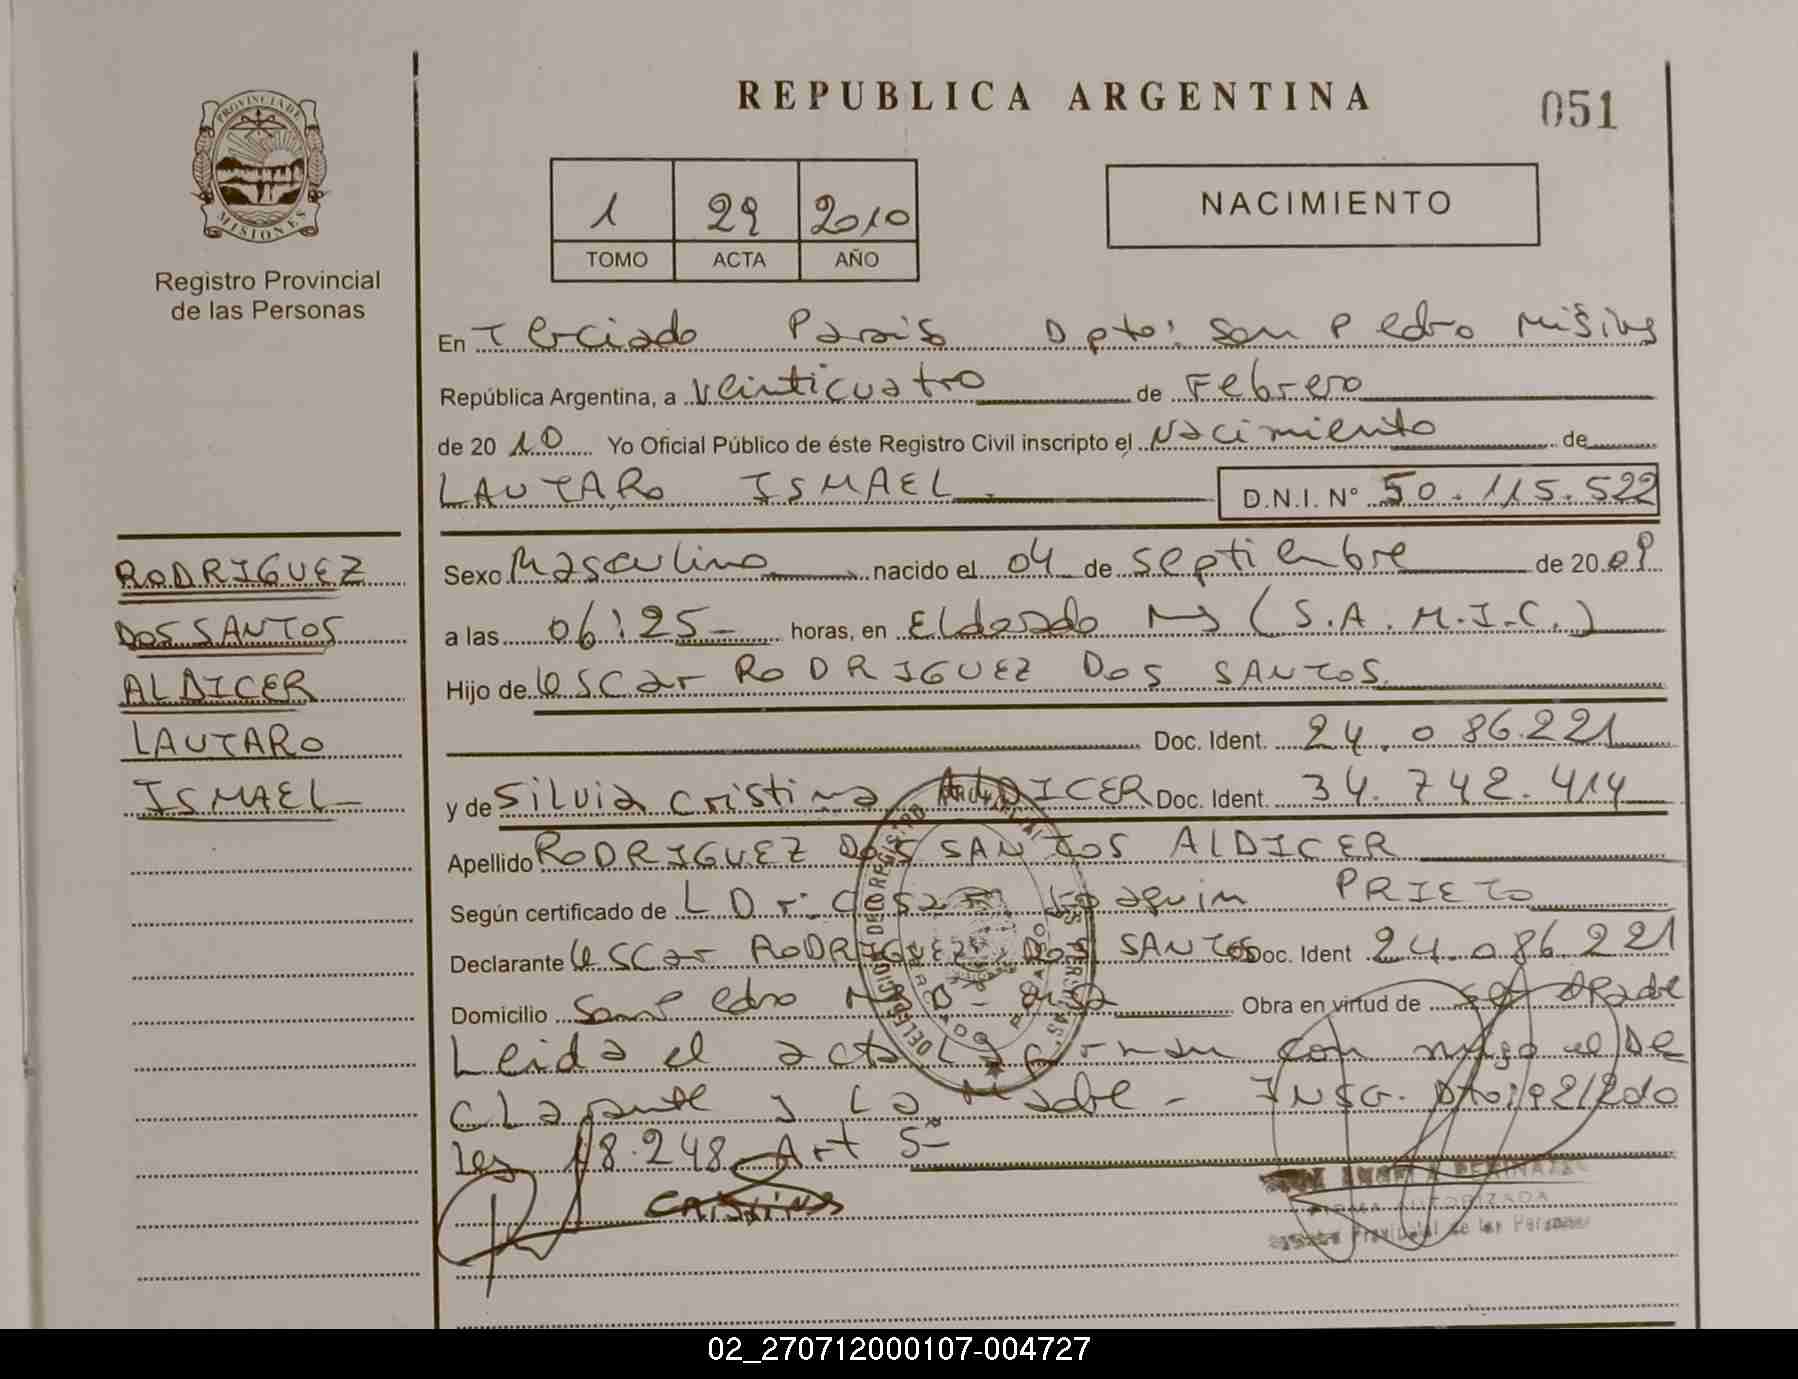 REPUBLICA ARGENTINA
051
PROVINCIA DE
MISIONES
Registro Provincial
de las Personas
1 29 2010
TOMO ACTA AÑO
NACIMIENTO
En Terciado Parais Dpto: San Pedro
República Argentina, a Veinticuatro de Febrero
de 2010 Yo Oficial Público de éste Registro Civil inscripto el Nacimiento de
LAUTARO ISMAEL D.N.I. N° 50.115.522
RODRIGUEZ
DOS SANTOS
ALDICER
LAUTARO
ISMAEL
Sexo Masculino nacido el 04 de septiembre de 2009
a las 06:25 horas, en Eldorado (S.A.M.I.C.)
Hijo de Oscar RODRIGUEZ DOS SANTOS
Doc. Ident. 24.086.221
y de Silvia Cristina ALDICER Doc. Ident. 34.742.414
Apellido RODRIGUEZ DOS SANTOS ALDICER
Según certificado de L Dr. Cesar Joaquin PRIETO
Declarante Oscar RODRIGUEZ DOS SANTOS Doc. Ident 24.086.221
Domicilio San Pedro Obra en virtud de
Leida el acta La firman con migo el De
clarante y La Madre - INSC. Dto: 192/2010
Ley 18.248 Art 5-
FIRMA AUTORIZADA
Provincial de las Personas
02_270712000107-004727